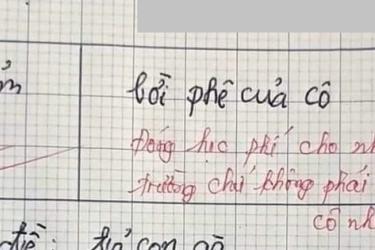 lời phê của cô
Đóng học phí cho nh
trường chứ không phải
cô nh
đề: tả con gà